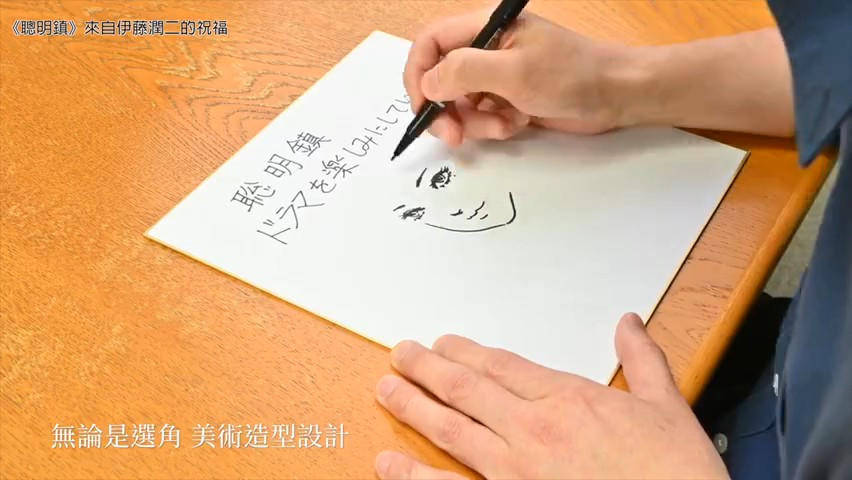 《聰明鎮》來自伊藤潤二的祝福
聡明鎮
ドラマを楽しみにしてい
無論是選角 美術造型設計